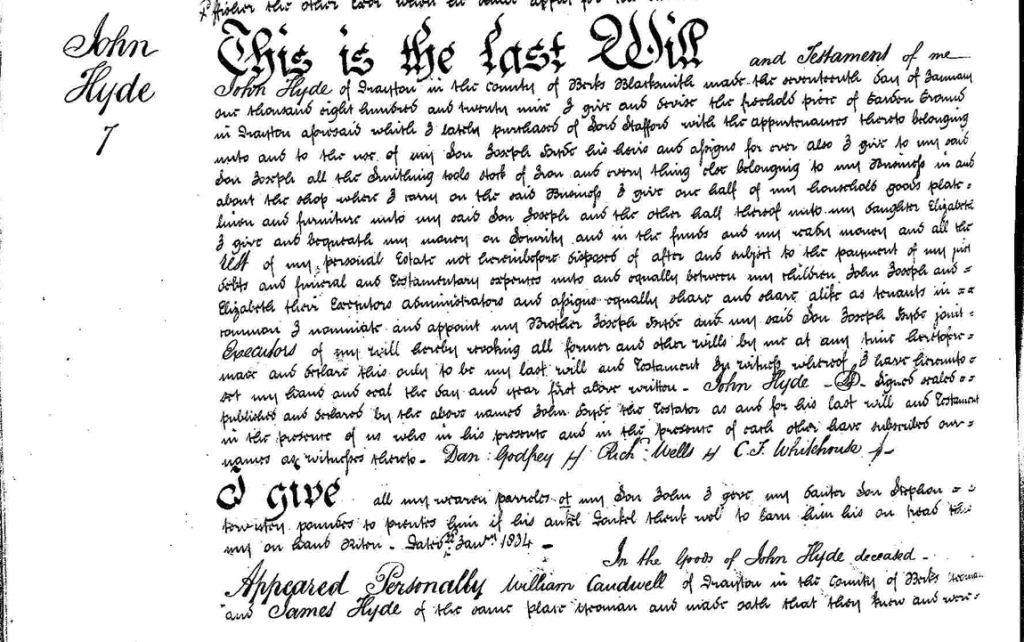 John
Hyde
7
This is the last Will and Testament of me
John Hyde of Drayton in the county of Berks Blacksmith made the seventeenth day of January
one thousand eight hundred and twenty nine I give and devise the freehold piece of Garden Ground
in Drayton aforesaid which I lately purchased of Lord Stafford with the appurtenances thereto belonging
unto and to the use of my Son Joseph Hyde his heirs and assigns for ever also I give to my said
Son Joseph all the Smithing tools stock of Iron and every thing else belonging to my Business in and
about the shop where I carry on the said Business I give one half of my household goods plate
linen and furniture unto my said Son Joseph and the other half thereof unto my daughter Elizabeth
I give and bequeath my money on Security and in the funds and my ready money and all the
rest of my personal Estate not hereinbefore disposed of after and subject to the payment of my just
debts and funeral and Testamentary expenses unto and equally between my children John Joseph and
Elizabeth their Executors administrators and assigns equally share and share alike as tenants in
common I nominate and appoint my Brother Joseph Hyde and my said Son Joseph Hyde joint
Executors of my will hereby revoking all former and other wills by me at any time heretofore
made and declare this only to be my last will and Testament In witness whereof I have hereunto
set my hand and seal the day and year first above written - John Hyde - LS - Signed sealed
published and declared by the above named John Hyde the Testator as and for his last will and Testament
in the presence of us who in his presence and in the presence of each other have subscribed our
names as witnesses thereto - Dan: Godfrey // Rich: Wells // C. F. Whitehouse //-
I give all my wearen parreles of my Son John I geve my Son Stephen
poundes to prentes him if his ankel to larn him his on trad the
my on hand Riten - Dated Janry 1834 -
In the Goods of John Hyde deceased -
Appeared Personally William Caudwell of Drayton in the County of Berks yeoman
and James Hyde of the same place yeoman and made oath that they knew and were